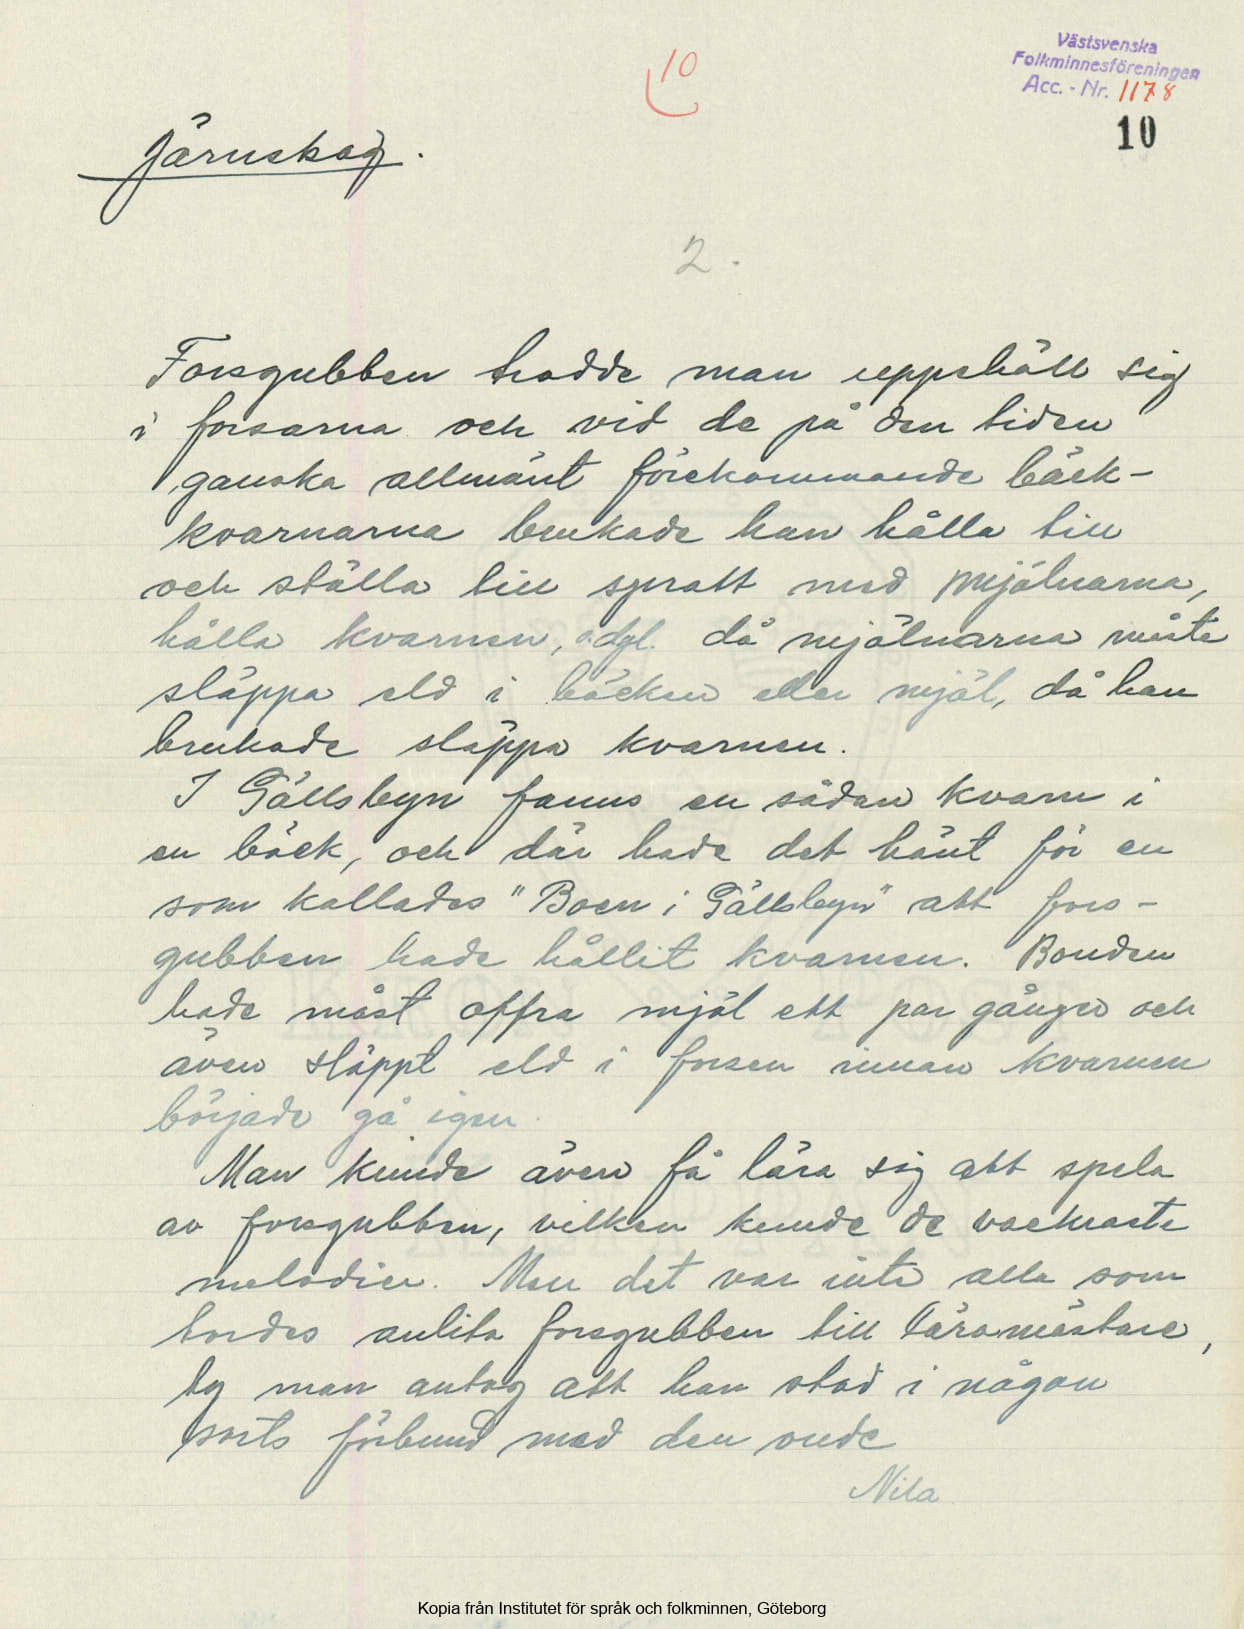 10
Västsvenska
Folkminnesföreningen
Acc. - Nr. 1178
10
Järnskog.
2.
Forsgubben trodde man uppehöll sig
i forsarna och vid de på den tiden
ganska allmänt förekommande bäck-
kvarnarna brukade han hålla till
och ställa till spratt med mjölnarna,
hålla kvarnen, o.dyl. då mjölnarna måste
släppa eld i bäcken eller mjöl, då han
brukade släppa kvarnen.
I Gällsbyn fanns en sådan kvarn i
en bäck, och där hade det hänt för en
som kallades "Boen i Gällsbyn" att fors-
gubben hade hållit kvarnen. Bonden
hade måst offra mjöl ett par gånger och
även släppt eld i forsen innan kvarnen
började gå igen.
Man kunde även få lära sig att spela
av forsgubben, vilken kunde de vackraste
melodier. Men det var inte alla som
tordes anlita forsgubben till läromästare,
ty man antog att han stod i någon
sorts förbund med den onde
Nila
Kopia från Institutet för språk och folkminnen, Göteborg